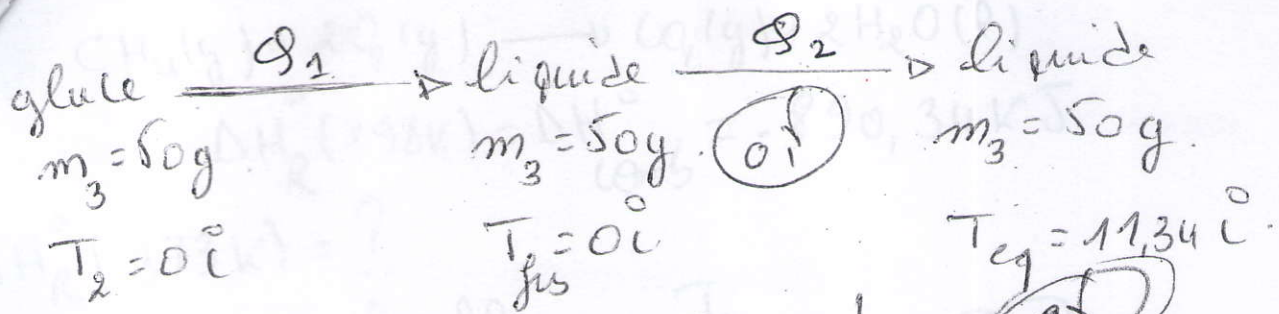 Q1 Q2
glace → liquide → liquide
m3 = 50g m3 = 50g. m3 = 50g.
T2 = 0°C Tfus = 0°C Teq = 11,34°C.